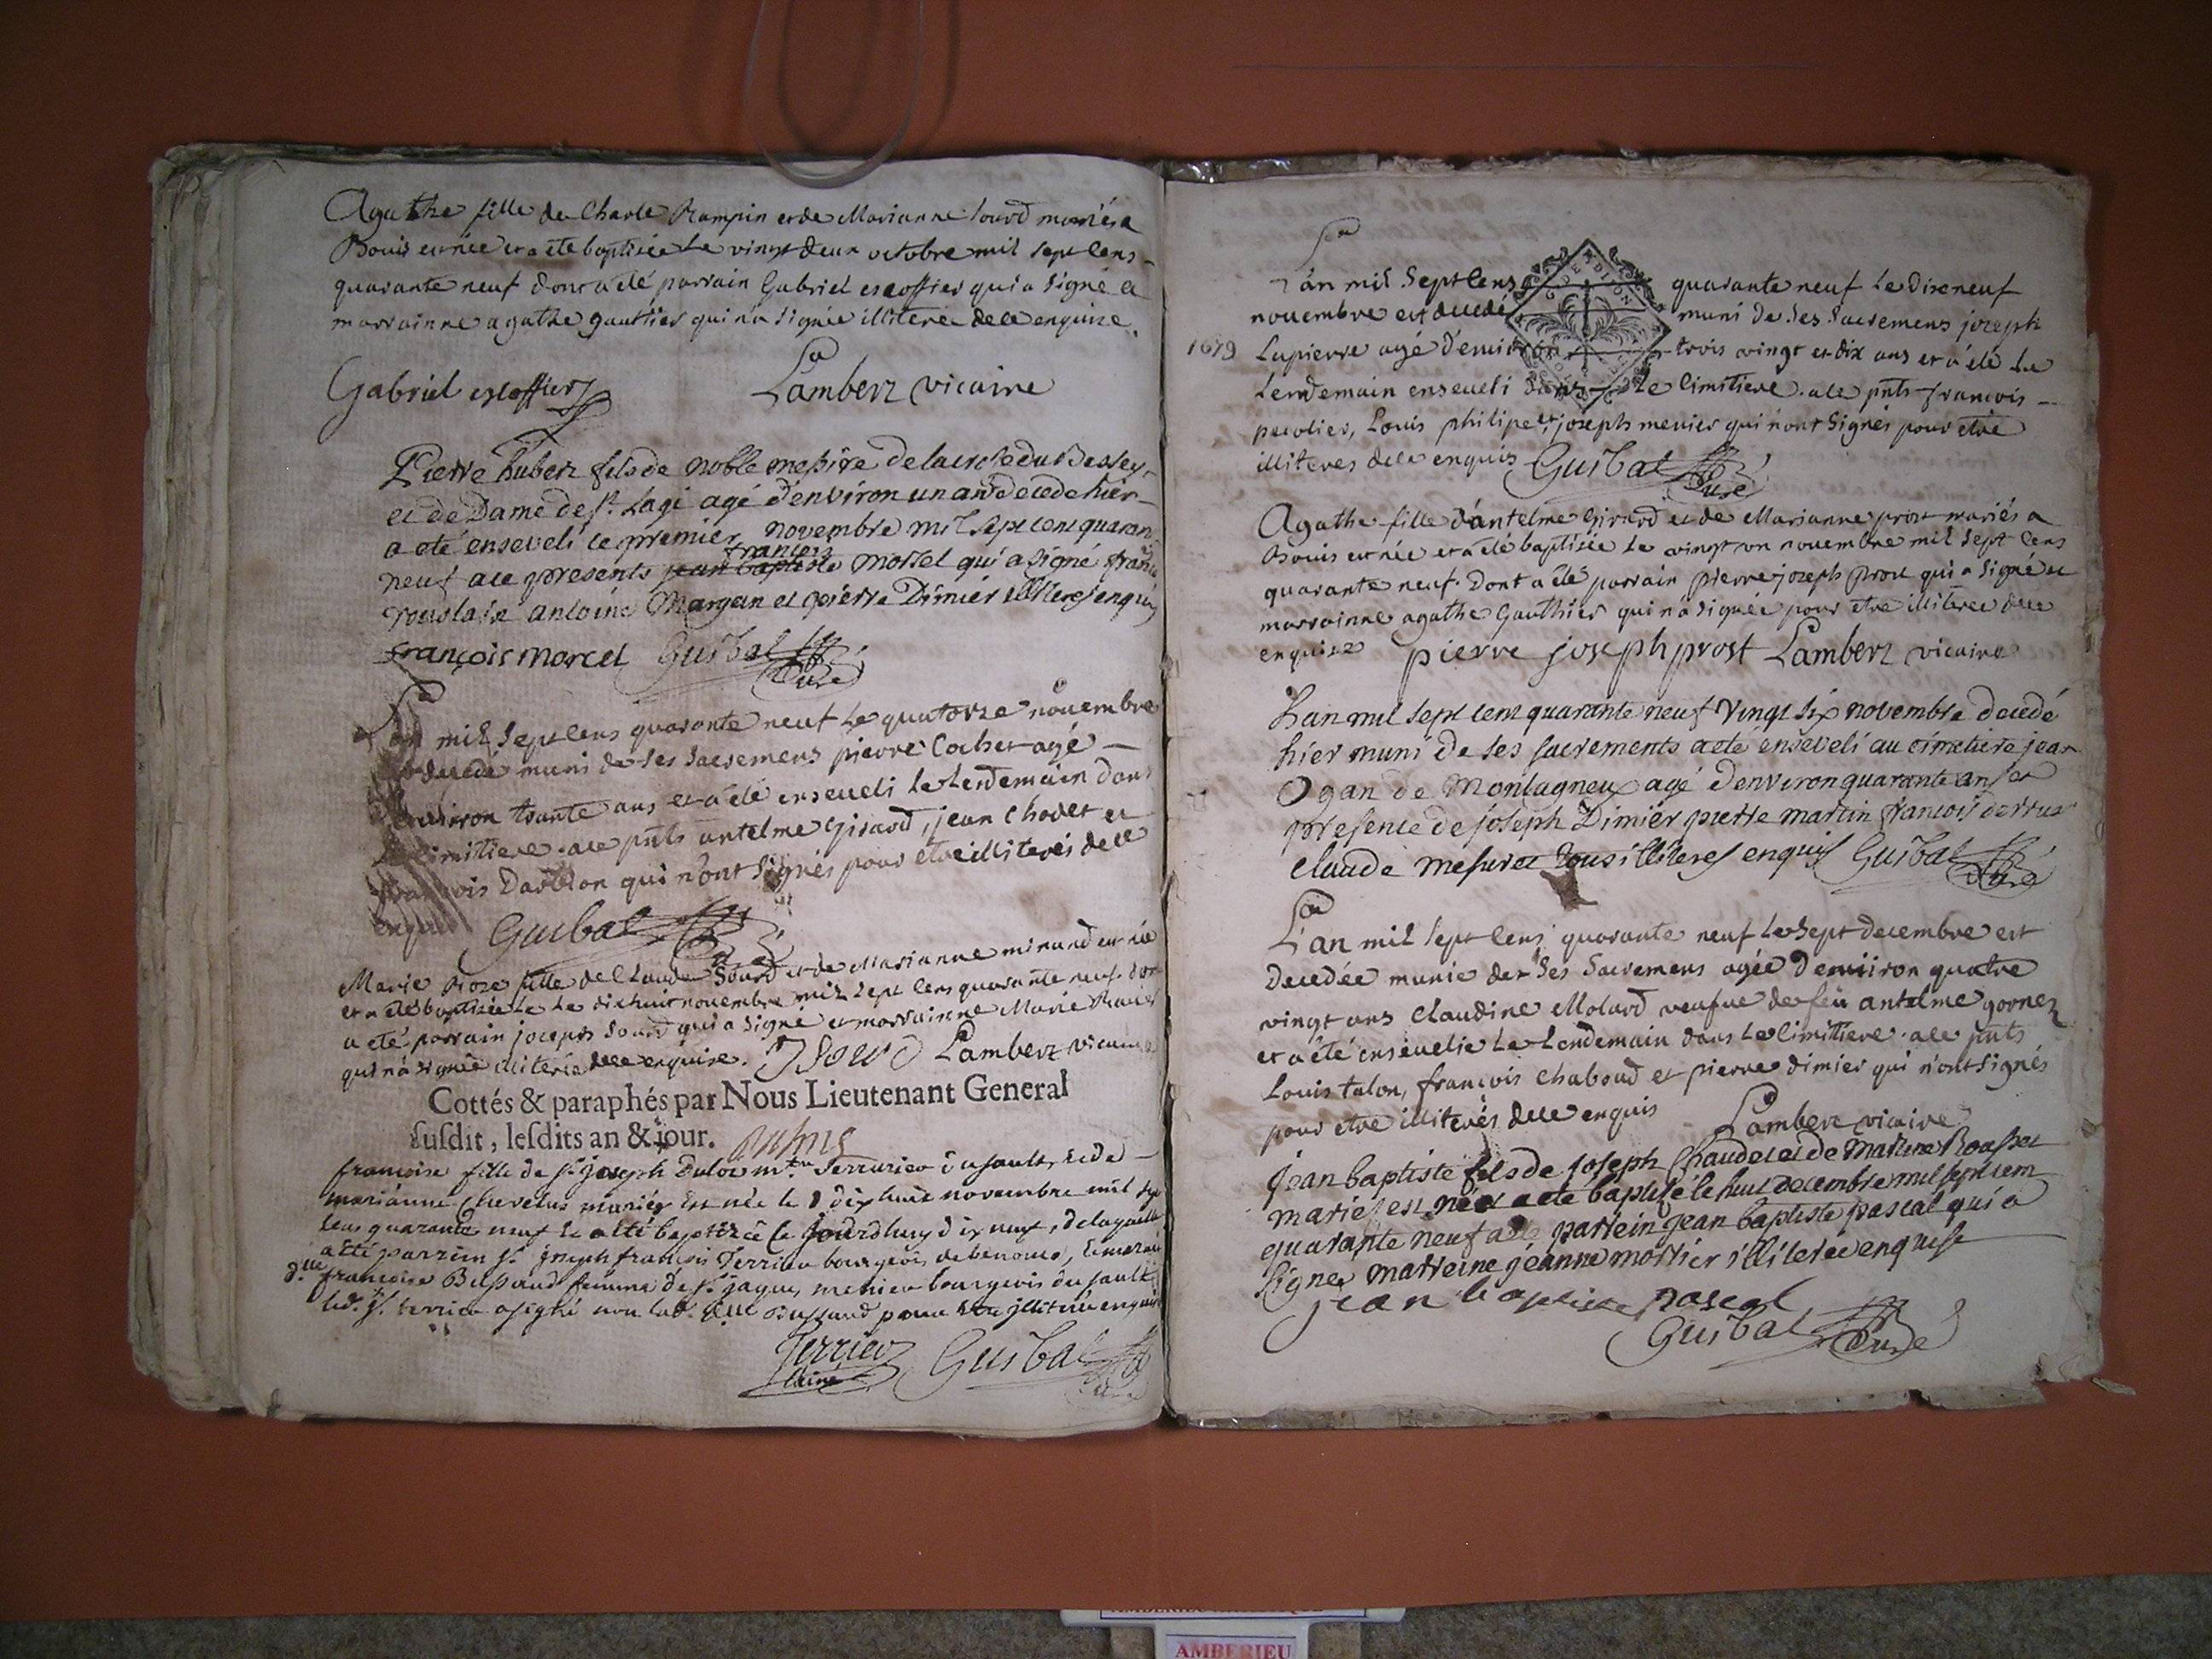 Agathe fille de Charle Rampin et de Marianne Sourd mariés a
Bouis est née et a été baptisée le vingt deux octobre mil sept cens
quarante neuf dont a été parrain Gabriel escoffier qui a signé et
marrainne agathe gauthier qui n'a signée illiterée de ce enquise.
Gabriel escoffier Lambert vicaire
Pierre huber fils de noble messire de la du Bessey
et de Dame de St. Lagi agé d'environ un an decedé hier
a eté enseveli le premier novembre mil sept cent quaran
françois
neuf a ce presents jean baptiste morsel qui a signé
antoine Margan et pierre Dimier illiteres enquis
françois morcel Guibal Curé
Lan mil sept cens quarante neuf le quatorze novembre
est decedé muni de ses sacremens pierre Cochet agé
d'environ trante ans et a été enseveli le lendemain dans
le cimitiere. a ce pnts antelme Girard, jean Chodet et
françois Darblon qui n'ont signés pour etre illiterés de ce
enquis Guibal Curé
Marie Rose fille de Claude Sourd et de Marianne minand est née
et a été baptisée le dixhuit novembre mil sept cens quarante neuf dont
a été parrain joseph Sourd qui a signé et marrainne Marie
qui n'a signée illiterée de ce enquise. J Sourd Lambert vicaire
Cottés & paraphés par Nous Lieutenant General
susdit, lesdits an & jour.
francoise fille de sr joseph Duloi mtre Serrurier du sault, et de
marianne Chevelus mariés est née le dix huit novembre mil sept
cens quarante neuf et a été baptizée le jourdhuy dix neuf, de laquelle
a été parrein sr. joseph françois Terrier bourgeois de benonce, et mareine
dlle francoise Bussand femme de sr. jaques menier bourgeois du sault
led. sr. terrier a signé non lad. dlle Bussand pour etre illiterée enquise
Terrier l'ainé Guibal Curé
L'an mil sept cens quarante neuf le dix neuf
novembre est decedé muni de ses sacremens joseph
1679 Lapierre agé d'environ trois vingt et dix ans et a été le
lendemain enseveli dans le cimitiere. a ce pnts françois
pecolier, Louis philipe et joseph menier qui n'ont signés pour etre
illiteres de ce enquis Guibal Curé
Agathe fille d'antelme Girard et de Marianne prost mariés a
Bouis est née et a été baptisée le vingt un novembre mil sept cens
quarante neuf. dont a été parrain pierre joseph prost qui a signé et
marrainne agathe Gauthier qui n'a signée pour etre illiterée de ce
enquise pierre joseph prost Lambert vicaire
Lan mil sept cent quarante neuf vingt six novembre decedé
hier muni de ses sacrements a eté enseveli au cimetiere jean
Ogan de Montagneux agé d'environ quarante ans et
presence de joseph Dimier pierre martin françois derrue
claude mesuret tous illiteres enquis Guibal Curé
L'an mil sept cens quarante neuf le sept decembre est
decedée munie de ses sacremens agée d'environ quatre
vingt ans Claudine Molard veufve de feu antelme gornez
et a été ensevelie le lendemain dans le cimittiere. a ce pnts
Louis talon, françois Chaboud et pierre dimier qui n'ont signés
pour etre illiterés de ce enquis Lambert vicaire
jean baptiste fils de joseph Chaudet et de Marine Rousset
mariés est né et a eté baptisé le huit decembre mil sept cent
quarante neuf a eté parrein jean baptiste pascal qui a
signe marreine jeanne mortier illiterée enquise
jean baptiste pascal
Guibal Curé
AMBERIEU